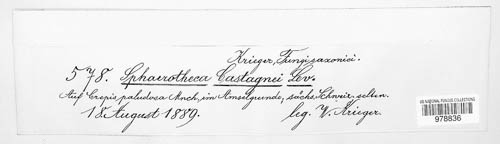 Krieger, Fungi saxonici.
578. Sphaerotheca Castagnei Lév.
Auf Crepis paludosa Mnch, im Amselgrunde, sächs. Schweiz, selten.
18. August 1889. leg. W. Krieger.
US NATIONAL FUNGUS COLLECTIONS
978836